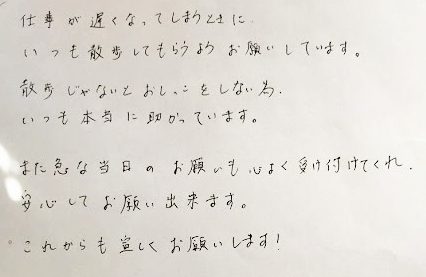 仕事が遅くなってしまうときに、
いつも散歩してもらうようお願いしています。
散歩じゃないとおしっこをしない為、
いつも本当に助かっています。
また急な当日のお願いも心よく受け付けてくれ、
安心してお願い出来ます。
これからも宜しくお願いします!